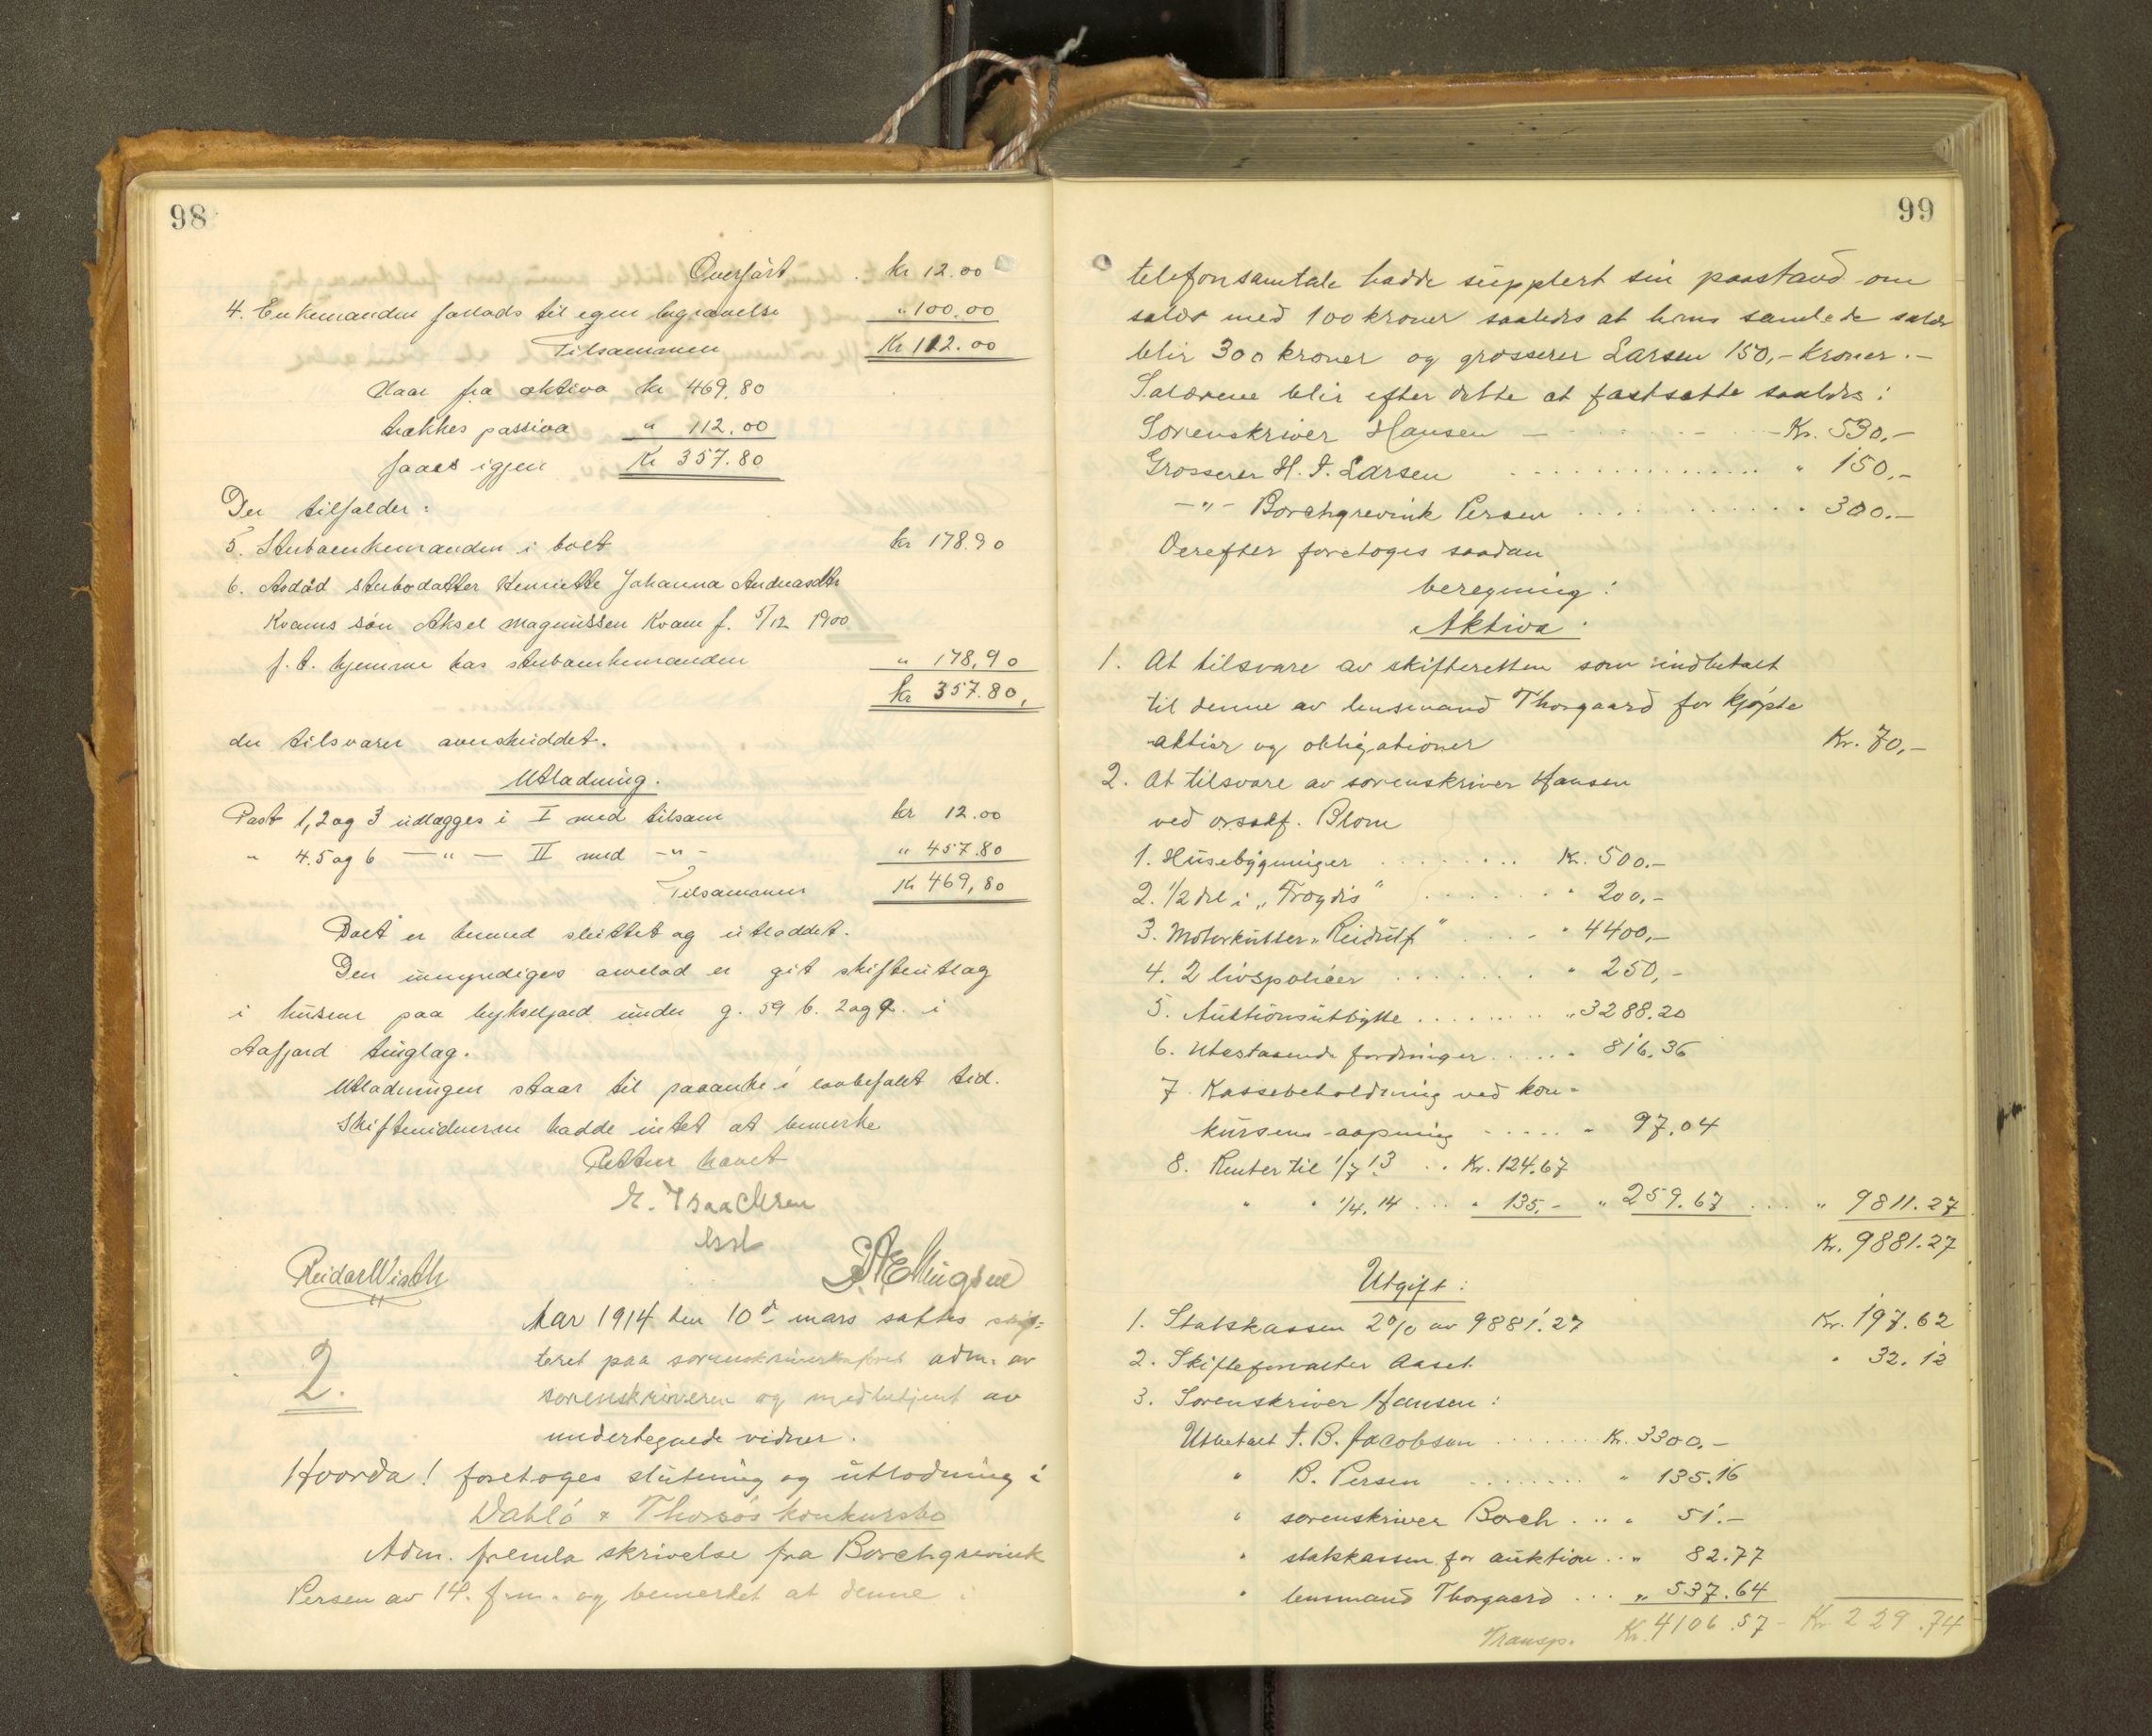 98
Overført . kr 12.00
4. Enkemanden forlods til egen begravelse " 100.00
Tilsammen Kr 112.00
Naar fra aktiva kr 469.80
trækkes passiva " 112.00
faaes igjen Kr 357.80
Der tilfalder:
5. Sterboenkemanden i boet kr 178.90
6. Avdød sterbodatter Henriette Johanna Andreasdtr
Kvams søn Aksel Magnussen Kvam f. 5/12 1900
f. t. hjemme hos sterboenkemanden " 178,90
kr 357.80,
der tilsvarer overskuddet.
Utlodning.
Post 1, 2 og 3 utlægges i I med tilsam kr 12.00
" 4. 5 og 6 — " — II med - " - " 457.80
Tilsammen Kr 469,80
Boet er hermed sluttet og utloddet.
Den umyndiges arvelod er git skifteutlæg
i husene paa bykseljord under g. 59 b. 2 og 9. i
Aafjord tinglag.
Utlodningen staar til paaanke i lovbefalet tid.
Skiftevidnerne hadde intet at bemerke
Retten hævet
E. Isaachsen
ReidarWisth P. A. Ellingsen
2.
Aar 1914 den 10de mars sattes skif-
teret paa sorenskriverkontoret adm. av
sorenskriveren og medbetjent av
undertegnede vidner.
Hvorda! foretoges slutning og utlodning i
Dahlø & Thorsøs konkursbo
Adm. fremla skrivelse fra Borchgrevink
Persen av 14. f. m. og bemerket at denne i
99
telefonsamtale hadde supplert sin paastand om
salær med 100 kroner saaledes at hans samlede salær
blir 300 kroner og grosserer Larsen 150,- kroner.-
Salærene blir efter dette at fastsætte saaledes:
Sorenskriver Hansen - - - - Kr. 530,-
Grosserer H. J. Larsen . . . . . . . . . " 150,-
- " - Borchgrevink Persen . . . . . . . . . 300.-
Derefter foretoges saadan
beregning:
Aktiva:
1. At tilsvare av skifteretten som indbetalt
til denne av lensmand Thorgaard for kjøpte
aktier og obligationer Kr. 70,-
2. At tilsvare av sorenskriver Hansen
ved orssf. Blom
1. Husebygninger . . . . . . . . Kr. 500.-
2. 1/2 del i "Frogdis" . . . . . . . " 200,-
3. Motorkutter "Reidulf" . . . . - " 4400,-
4. 2 livspolicer . . . . . . . . " 250,-
5. Auktionsutbytte . . . . . . . . . " 3288.20
6. Utestaaende fordringer . . . . . " 816.36
7. Kassebeholdning ved kon-
kursens aapning - - - . . " 97.04
8. Renter til 1/7 13 . . Kr. 124.67
" " 1/4. 14 . . . " 135,- " 259.67 . . . " 9811.27
Kr. 9881.27
Utgift:
1. Statskassen 2% av 9881.27 Kr. 197.62
2. Skifteforvalter Aaset. " 32.12
3. Sorenskriver Hansen:
Utbetalt t. B. Jacobsen . . . . . . . Kr. 3300,-
" B. Persen . . . . . . . . " 135.16
" sorenskriver Borch . . . " 51.-
" statskassen for auktion . . " 82.77
" lensmand Thorgaard . . . " 537.64
Transp. Kr. 4106.57 - Kr 229.74